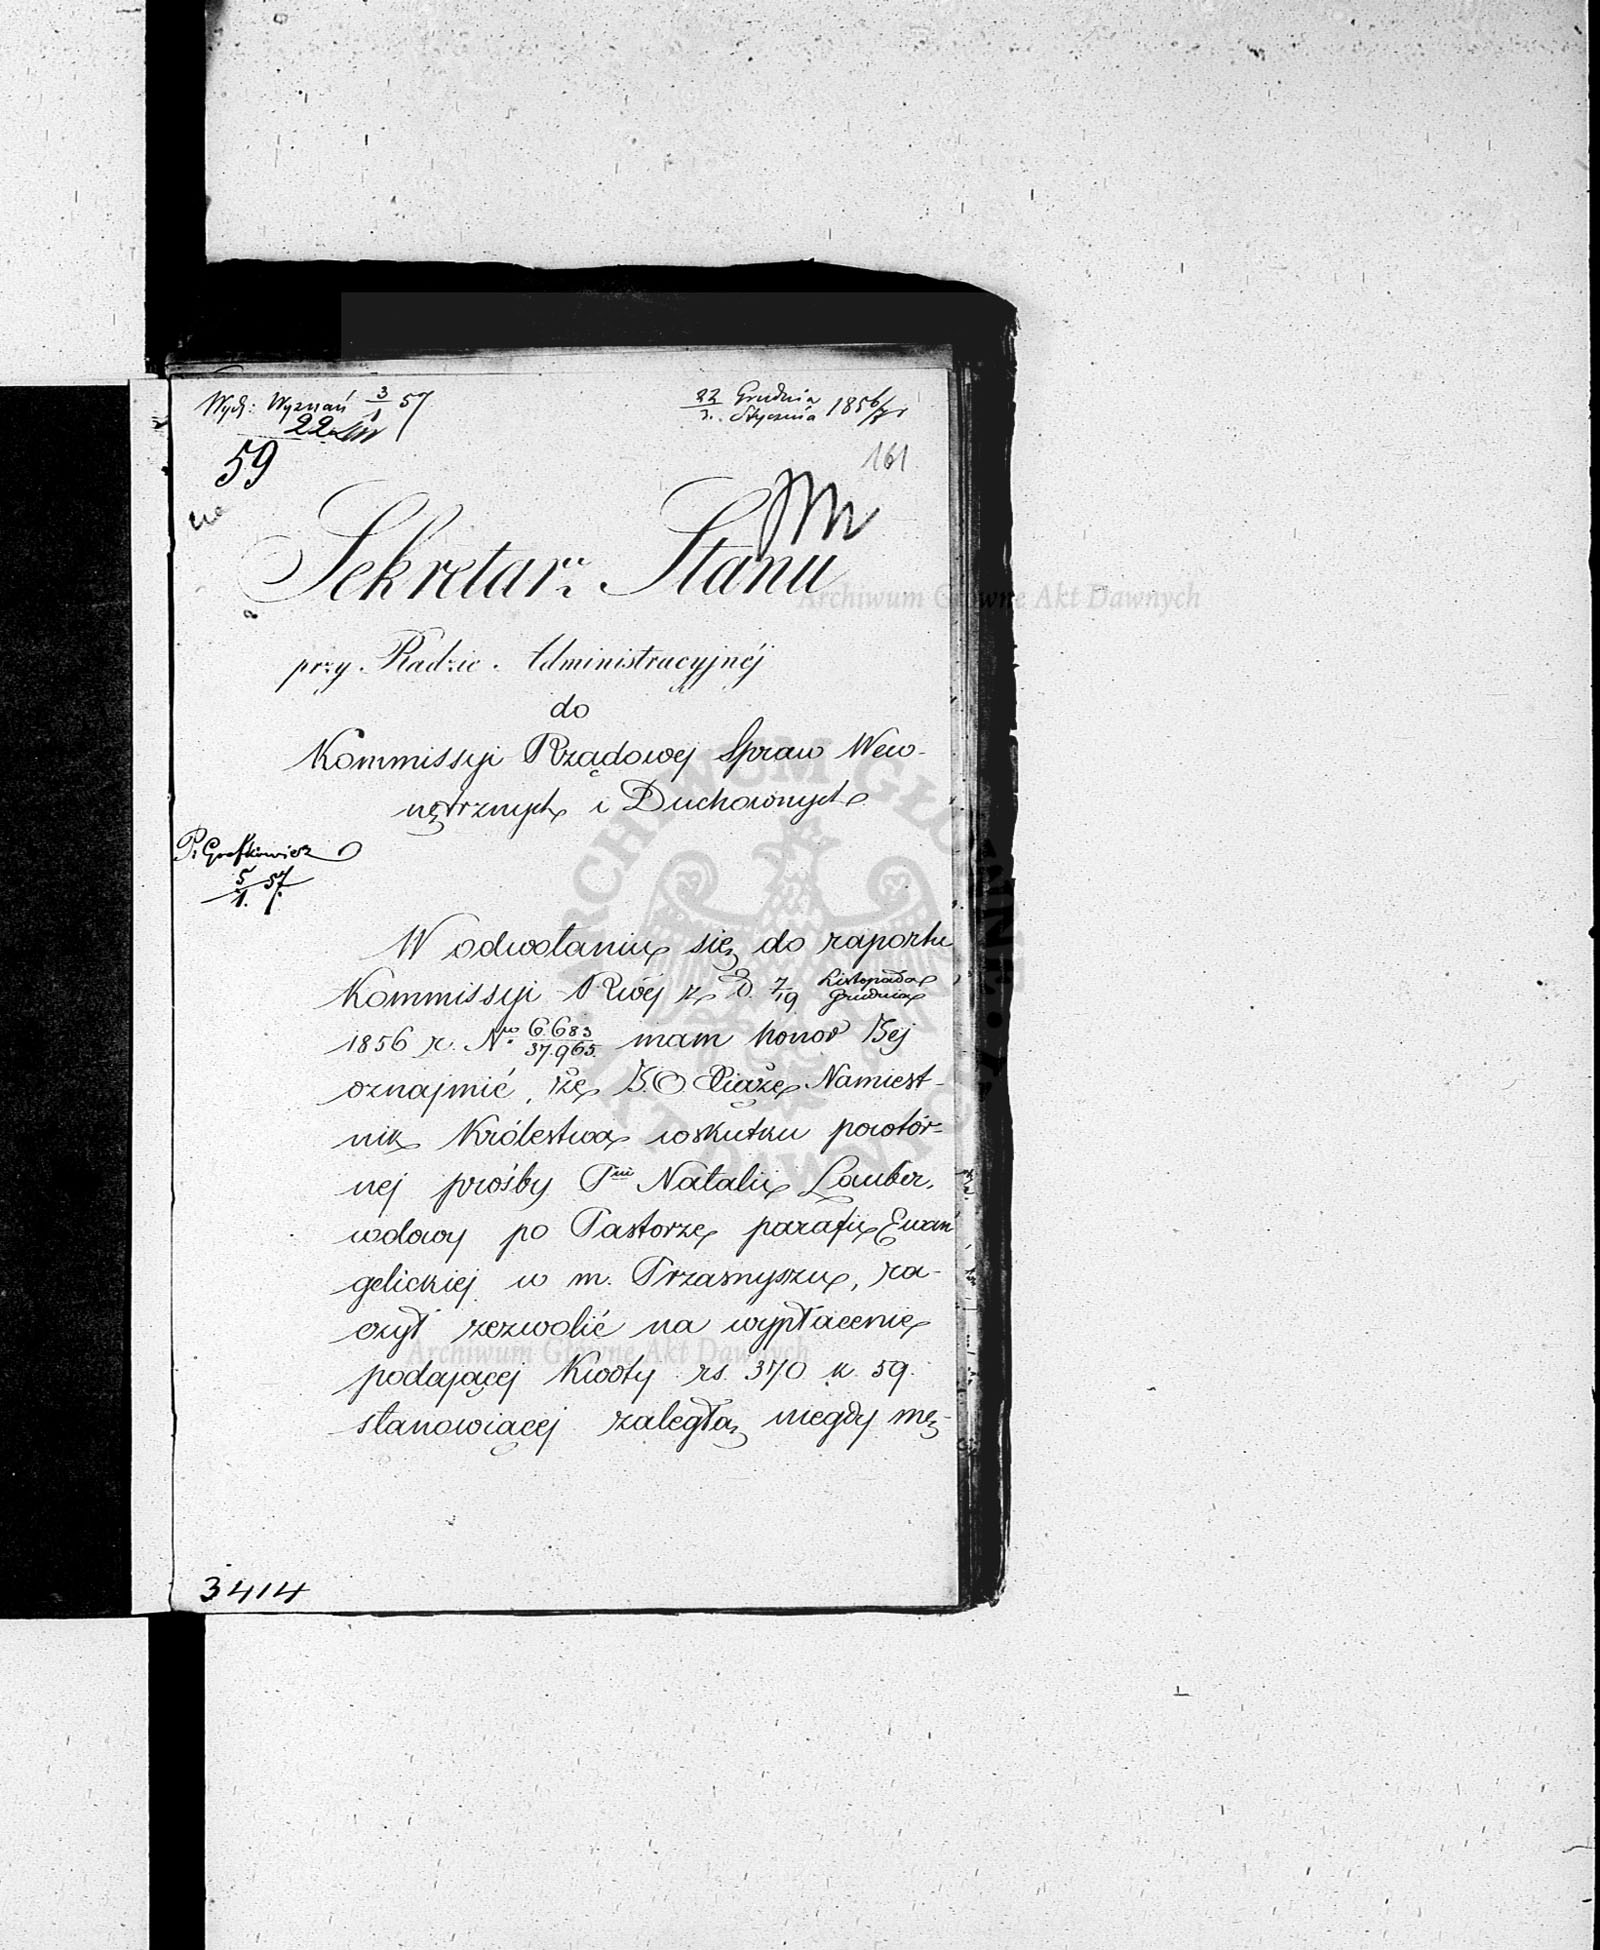 Wydz: Wyznań 3/1 57
22 Grudnia / 3. Stycznia 1856/7 r
59
161
Sekretarz Stanu
przy Radzie Administracyjnéj
do
Kommissyi Rządowej Spraw Wew-
nętrznych i Duchownych
5/1. 57.
W odwołaniu się do raportu
Kommissyi Rwéj z D. 7/19 Listopada / Grudnia
1856 r. Nro 6.683/37.965. mam honor Jéj
oznajmić, że J.O. Xiąże Namiest-
nik Królestwa wskutku powtór-
nej prośby Pni Natalii Lauber,
wdowy po Pastorze parafii Ewan
gelickiej w m. Przasnyszu, ra-
czył zezwolić na wypłacenie
podającej Kwoty rs. 370 k. 59.
stanowiącej zaległą niegdy mę-
3414
Archiwum Główne Akt Dawnych
Archiwum Główne Akt Dawnych